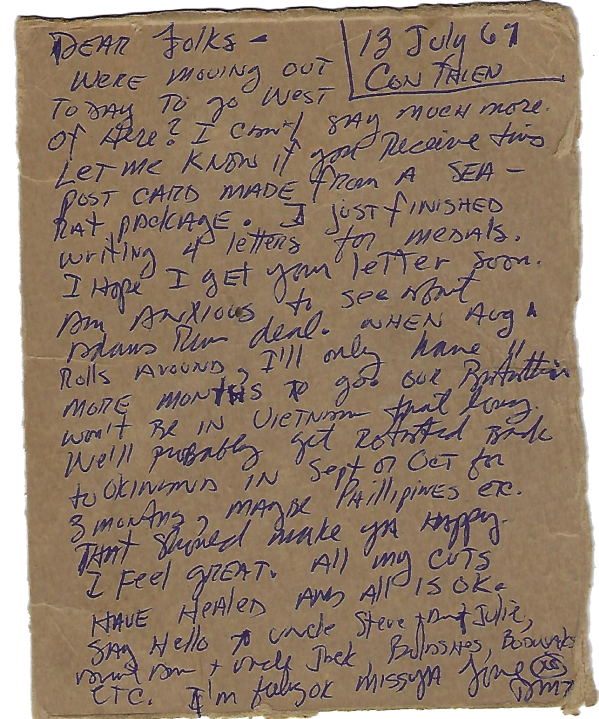 DEAR Folks -
13 July 67
CON THIEN
WERE MOVING OUT
TODAY TO go WEST
OF Here? I can't SAY MUCH more.
LET me KNOW if you Receive this
POST CARD MADE from A SEA-
RAT package. I just FINISHED
writing 4 letters for medals.
I Hope I get your letter soon.
Am ANXIOUS to see about
Adams Run deal. WHEN Aug 1
Rolls AROUND, I'll only have 11
MORE MONTHS to go. Our Battalion
won't BE IN VIETNAM that long.
We'll probably get Rotated Back
to OKINAWA IN Sept or Oct for
3 months, maybe PHILLIPINES etc.
THAT Should make YA HAPPY.
I Feel GREAT. All my CUTS
HAVE HEALED AND All IS OK.
SAY Hello to uncle Steve + Aunt Julie,
Aunt Ann + uncle Jack,
ETC. I'm fully OK MISSYA Love